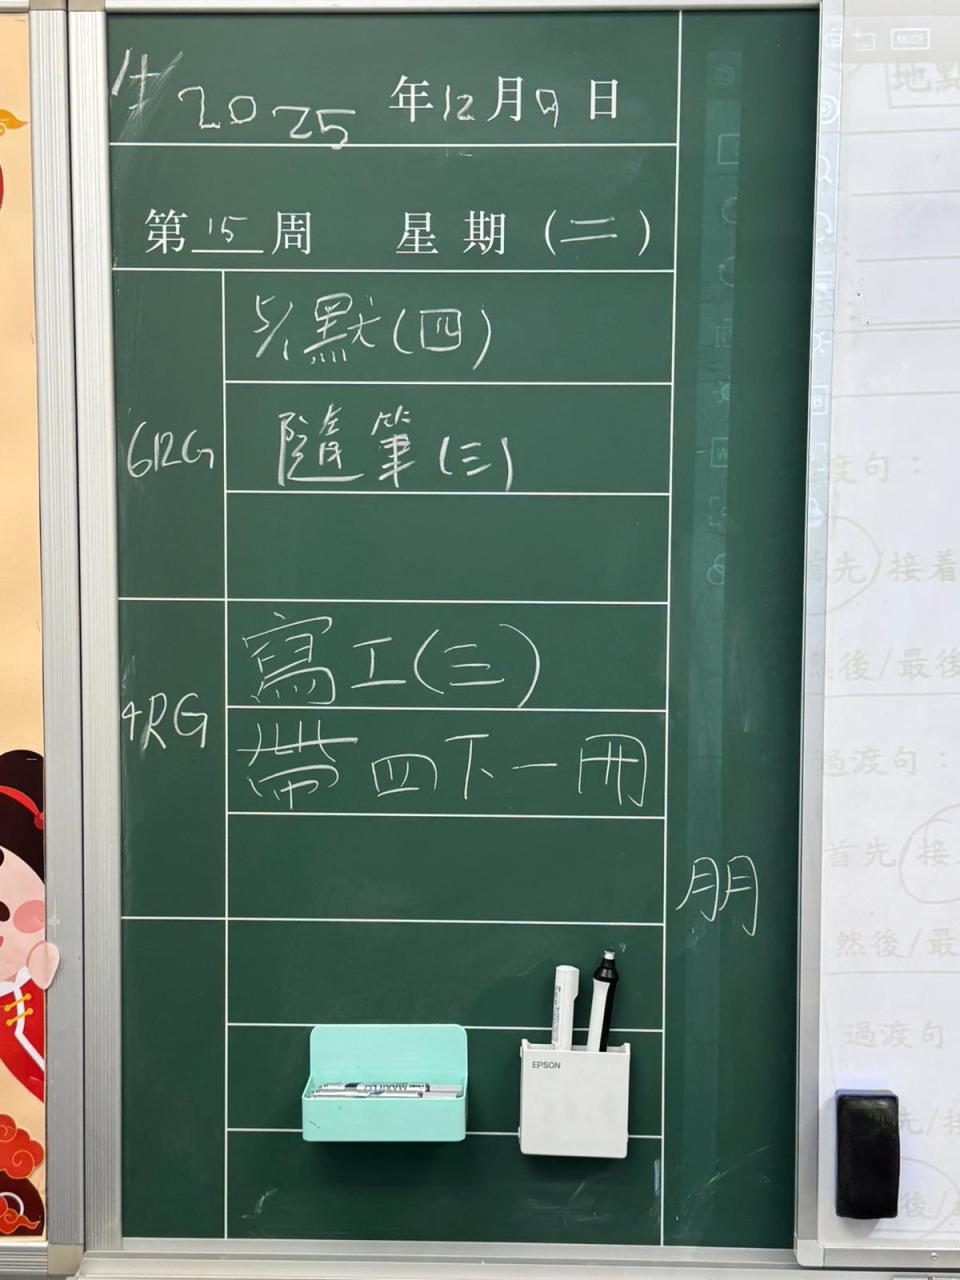 2025年12月9日
第15周 星期(二)
6RG
5/1默(四)
隨筆(三)
4RG
寫工(三)
帶四下一冊
朋
EPSON
MODE
地點
度句：
首先/接着
然後/最後
過渡句：
首先/接
然後/最
過渡句
先/接
後/